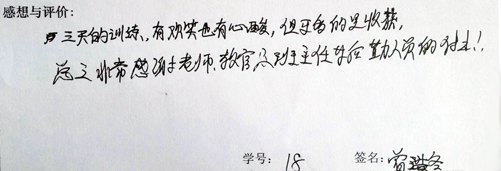 感想与评价:
三天的训练,有欢笑也有心酸,但更多的是收获,
总之非常感谢老师、教官及班主任等后勤人员的付出!
学号: 18 签名: 曾